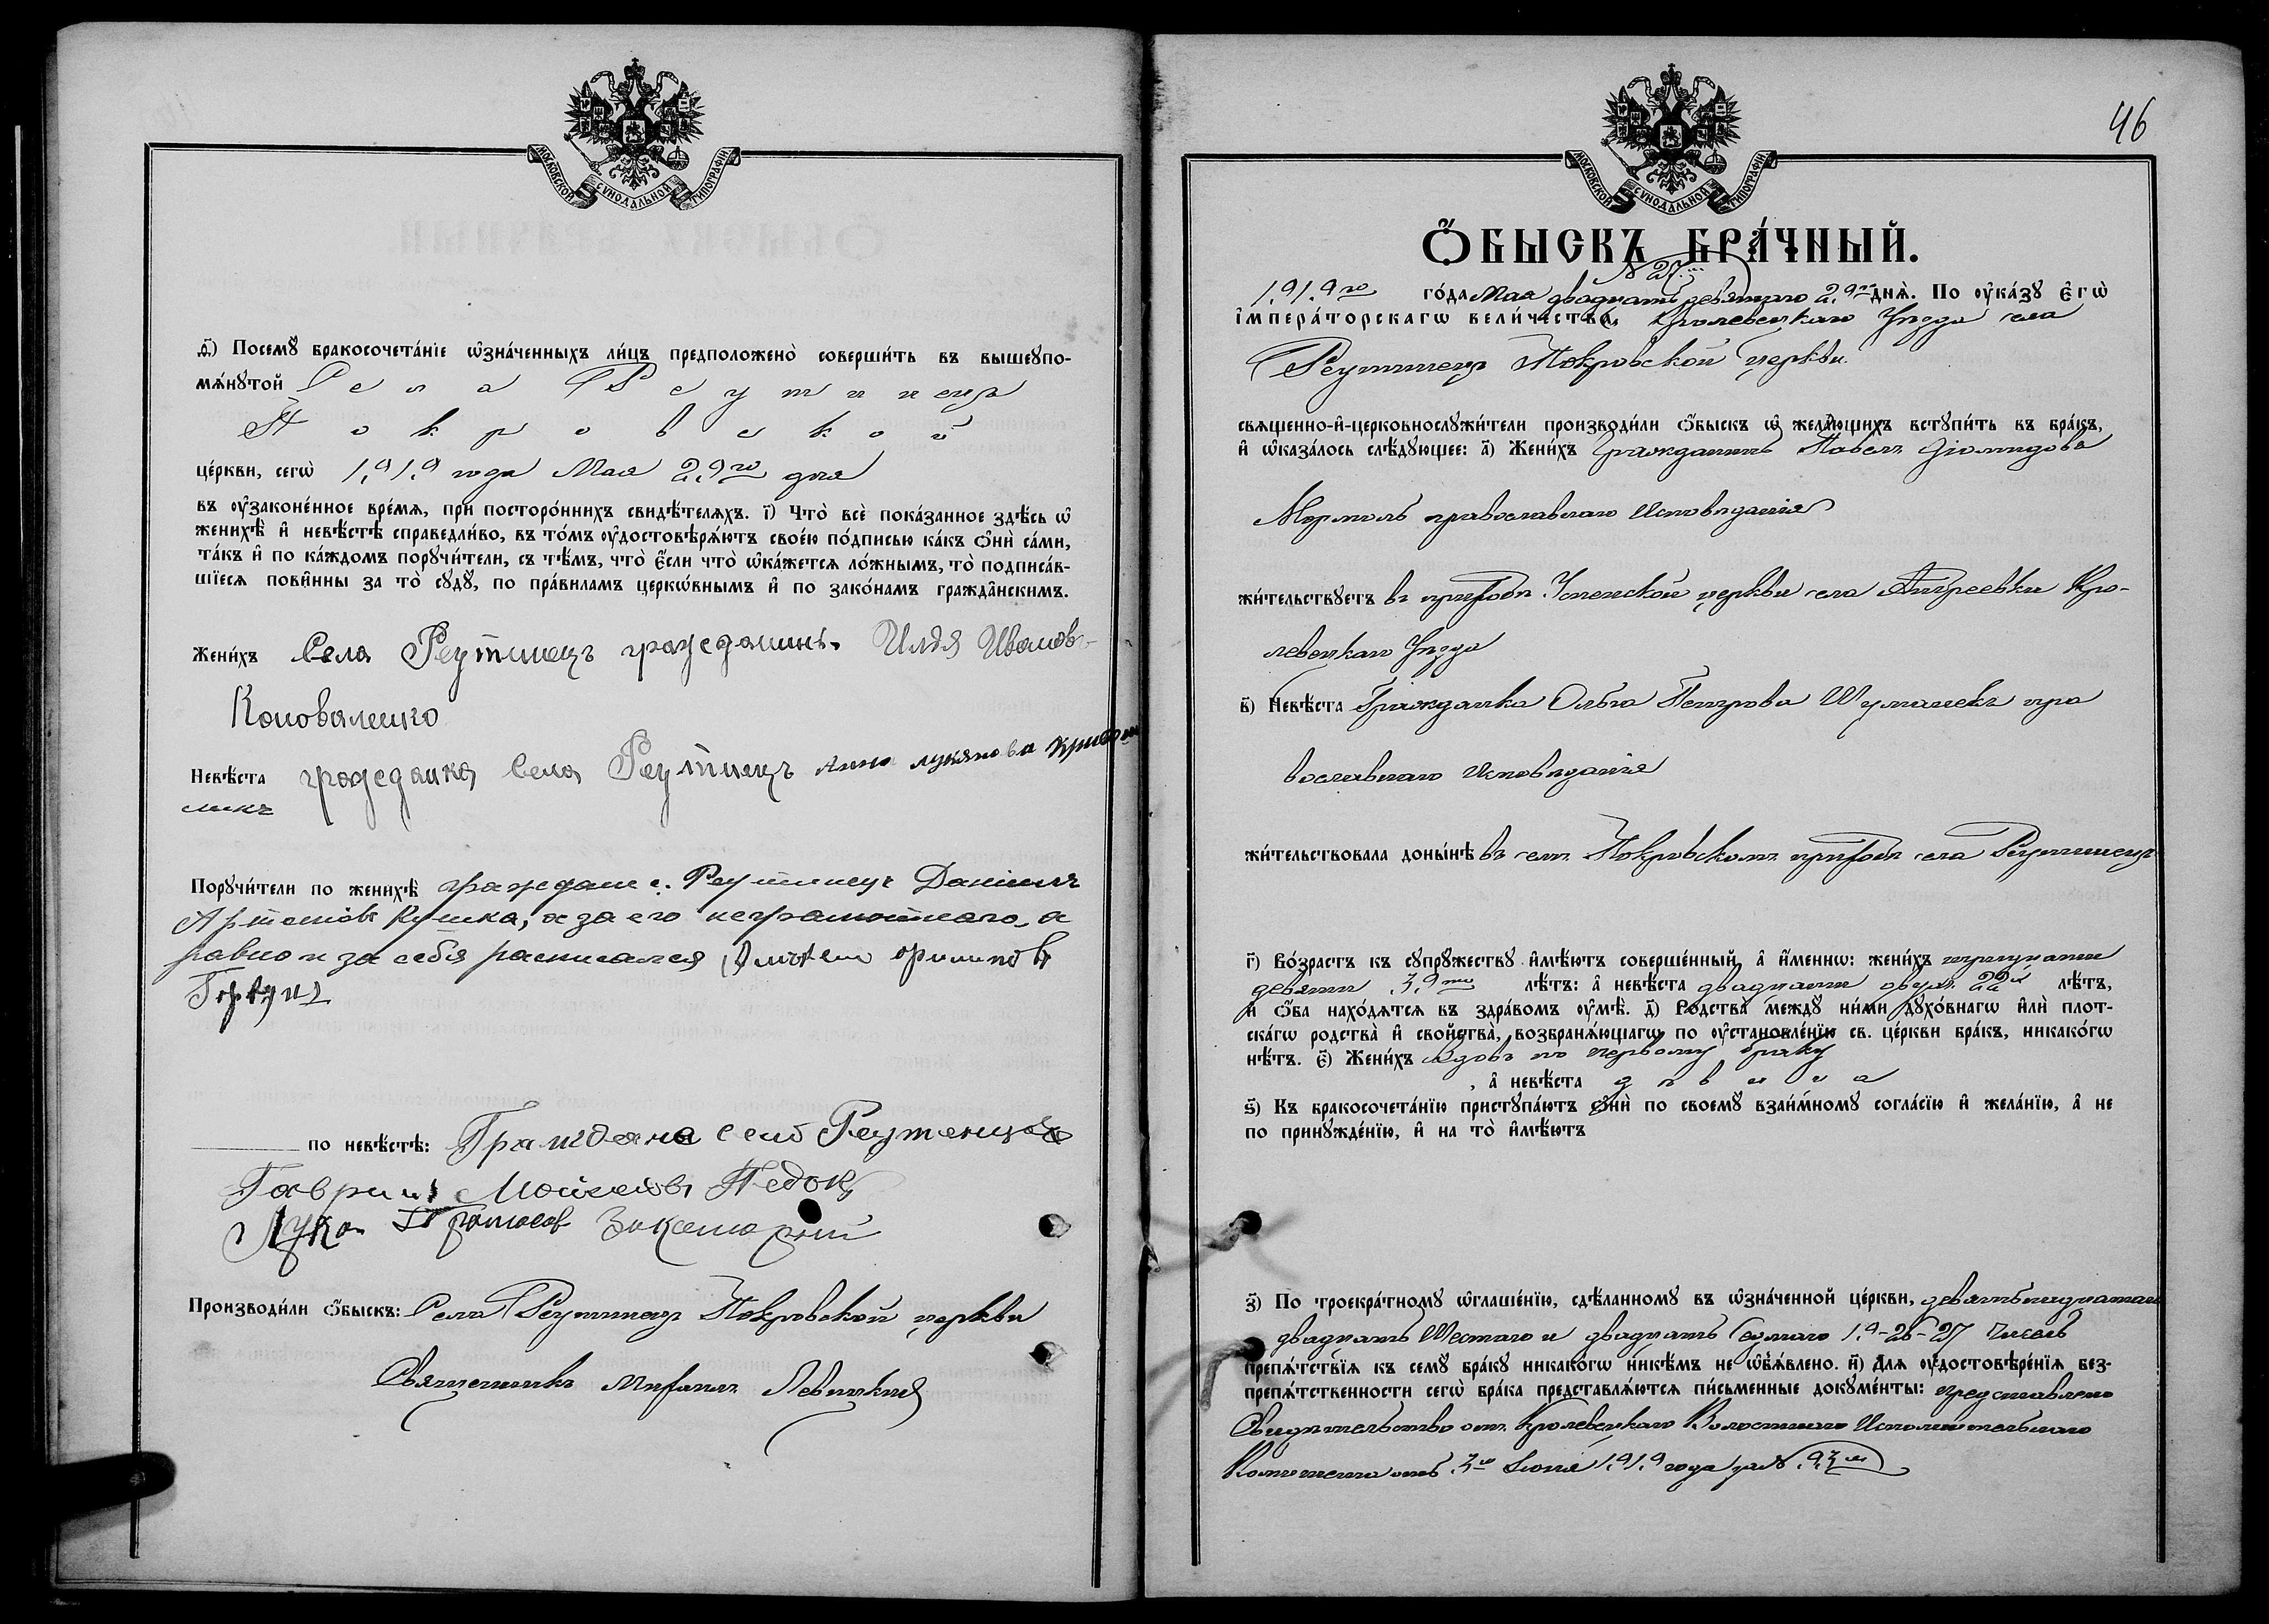 МОСКОВСКОЙ СѴНОДАЛЬНОЙ ТИПОГРАФІИ
ѳ҃) Посемꙋ бракосочета́нїе ѡ҆зна́ченныхъ ли́цъ предположено̀ соверши́ть въ вышеꙋпо-
мѧ́нꙋтой Села Реутинецъ
Покровской
це́ркви, сегѡ̀ 1919 года Мая 29го дня
въ ᲂу҆законе́нное вре́мѧ, при посторо́ннихъ свидѣ́телѧхъ. і҃) Что̀ всѐ пока́занное здѣ́сь ѡ҆
женихѣ̀ и҆ невѣ́стѣ справедли́во, въ то́мъ ᲂу҆достовѣрѧ́ютъ свое́ю по́дписью ка́къ ѻ҆нѝ са́ми,
та́къ и҆ по ка́ждомъ порꙋчи́тели, съ тѣ́мъ, что̀ є҆́сли что̀ ѡ҆ка́жетсѧ ло́жнымъ, то̀ подписа́в-
шїесѧ пови́нны за то̀ сꙋдꙋ̀, по пра́виламъ церко́внымъ и҆ по зако́намъ гражда́нскимъ.
Жени́хъ Села Реутинецъ гражданинъ Илья Иванов-
Коноваленко
Невѣ́ста гражданка Села Реутинецъ Анна лукянова
Порꙋчи́тели по женихѣ̀ граждане с. Реутинецъ Даніилъ
Артемовъ Кушка, а за его неграмотнаго, а
равно и за себя расписался
по невѣ́стѣ: Граждана село Реутенца
Гавриил Мойсеовъ Педок
Лука
Производи́ли ѻ҆́быскъ: Села Реутинецъ Покровской церкви
Священникъ Михаилъ Левицкій
46
МОСКОВСКОЙ СѴНОДАЛЬНОЙ ТИПОГРАФІИ
Ѻ҆́БЫСКЪ БРА́ЧНЫЙ.
№ 27.
1919го го́да Мая двадцать девятаго 29го днѧ̀. По ᲂу҆ка́зꙋ є҆гѡ̀
і҆мпера́торскагѡ вели́чества, Кролевецкаго Уѣзда села
Реутинецъ Покровской церкви
свѧще́нно-и҆-церковнослꙋжи́тели производи́ли ѻ҆́быскъ ѡ҆ жела́ющихъ встꙋпи́ть въ бра́къ,
и҆ ѡ҆каза́лось слѣ́дꙋющее: а҃) Жени́хъ Гражданинъ Павелъ Діомидовъ
Мормоль православнаго Исповѣданія
жи́тельствꙋетъ въ приходѣ Успенской церкви села Андреевки Кро-
левецкаго Уѣзда
в҃) Невѣ́ста Гражданка Ольга Петрова Шуманекъ пра
вославнаго Исповѣданія
жи́тельствовала доны́нѣ въ семъ Покровскомъ приходѣ села Реутинецъ
г҃) Во́зрастъ къ сꙋпрꙋ́жествꙋ и҆мѣ́ютъ соверше́нный, а҆ и҆́меннѡ: жени́хъ тридцати
девяти 39ти лѣ́тъ: а҆ невѣ́ста двадцати двухъ 22й лѣ́тъ,
и҆ ѻ҆́ба нахо́дѧтсѧ въ здра́вомъ ᲂу҆мѣ̀. д҃) Родства̀ междꙋ̀ ни́ми дꙋхо́внагѡ и҆лѝ плот-
ска́гѡ родства̀ и҆ свойства̀, возбранѧ́ющагѡ по ᲂу҆становле́нїю св. це́ркви бра́къ, никако́гѡ
нѣ́тъ. є҃) Жени́хъ вдовъ по первому браку
, а҆ невѣ́ста дѣвица
ѕ҃) Къ бракосочета́нїю пристꙋпа́ютъ ѻ҆нѝ по своемꙋ̀ взаи́мномꙋ согла́сїю и҆ жела́нїю, а҆ не
по принꙋжде́нїю, и҆ на то̀ и҆мѣ́ютъ
з҃) По троекра́тномꙋ ѡ҆глаше́нїю, сдѣ́ланномꙋ въ ѡ҆зна́ченной це́ркви, девятьнадцатаго
двадцать Шестаго и двадцать Седмаго 19-26-27 Числъ
препѧ́тствїѧ къ семꙋ̀ бра́кꙋ никако́гѡ никѣ́мъ не ѡ҆б̾ѧ́влено. и҃) Длѧ ᲂу҆достовѣре́нїѧ без-
препѧ́тственности сегѡ̀ бра́ка представлѧ́ютсѧ пи́сьменные докꙋме́нты: представлено
Свидѣтельство отъ Кролевецкаго Волостнаго Исполнительнаго
Комитета отъ 3го Іюня 1919 года за № 93м